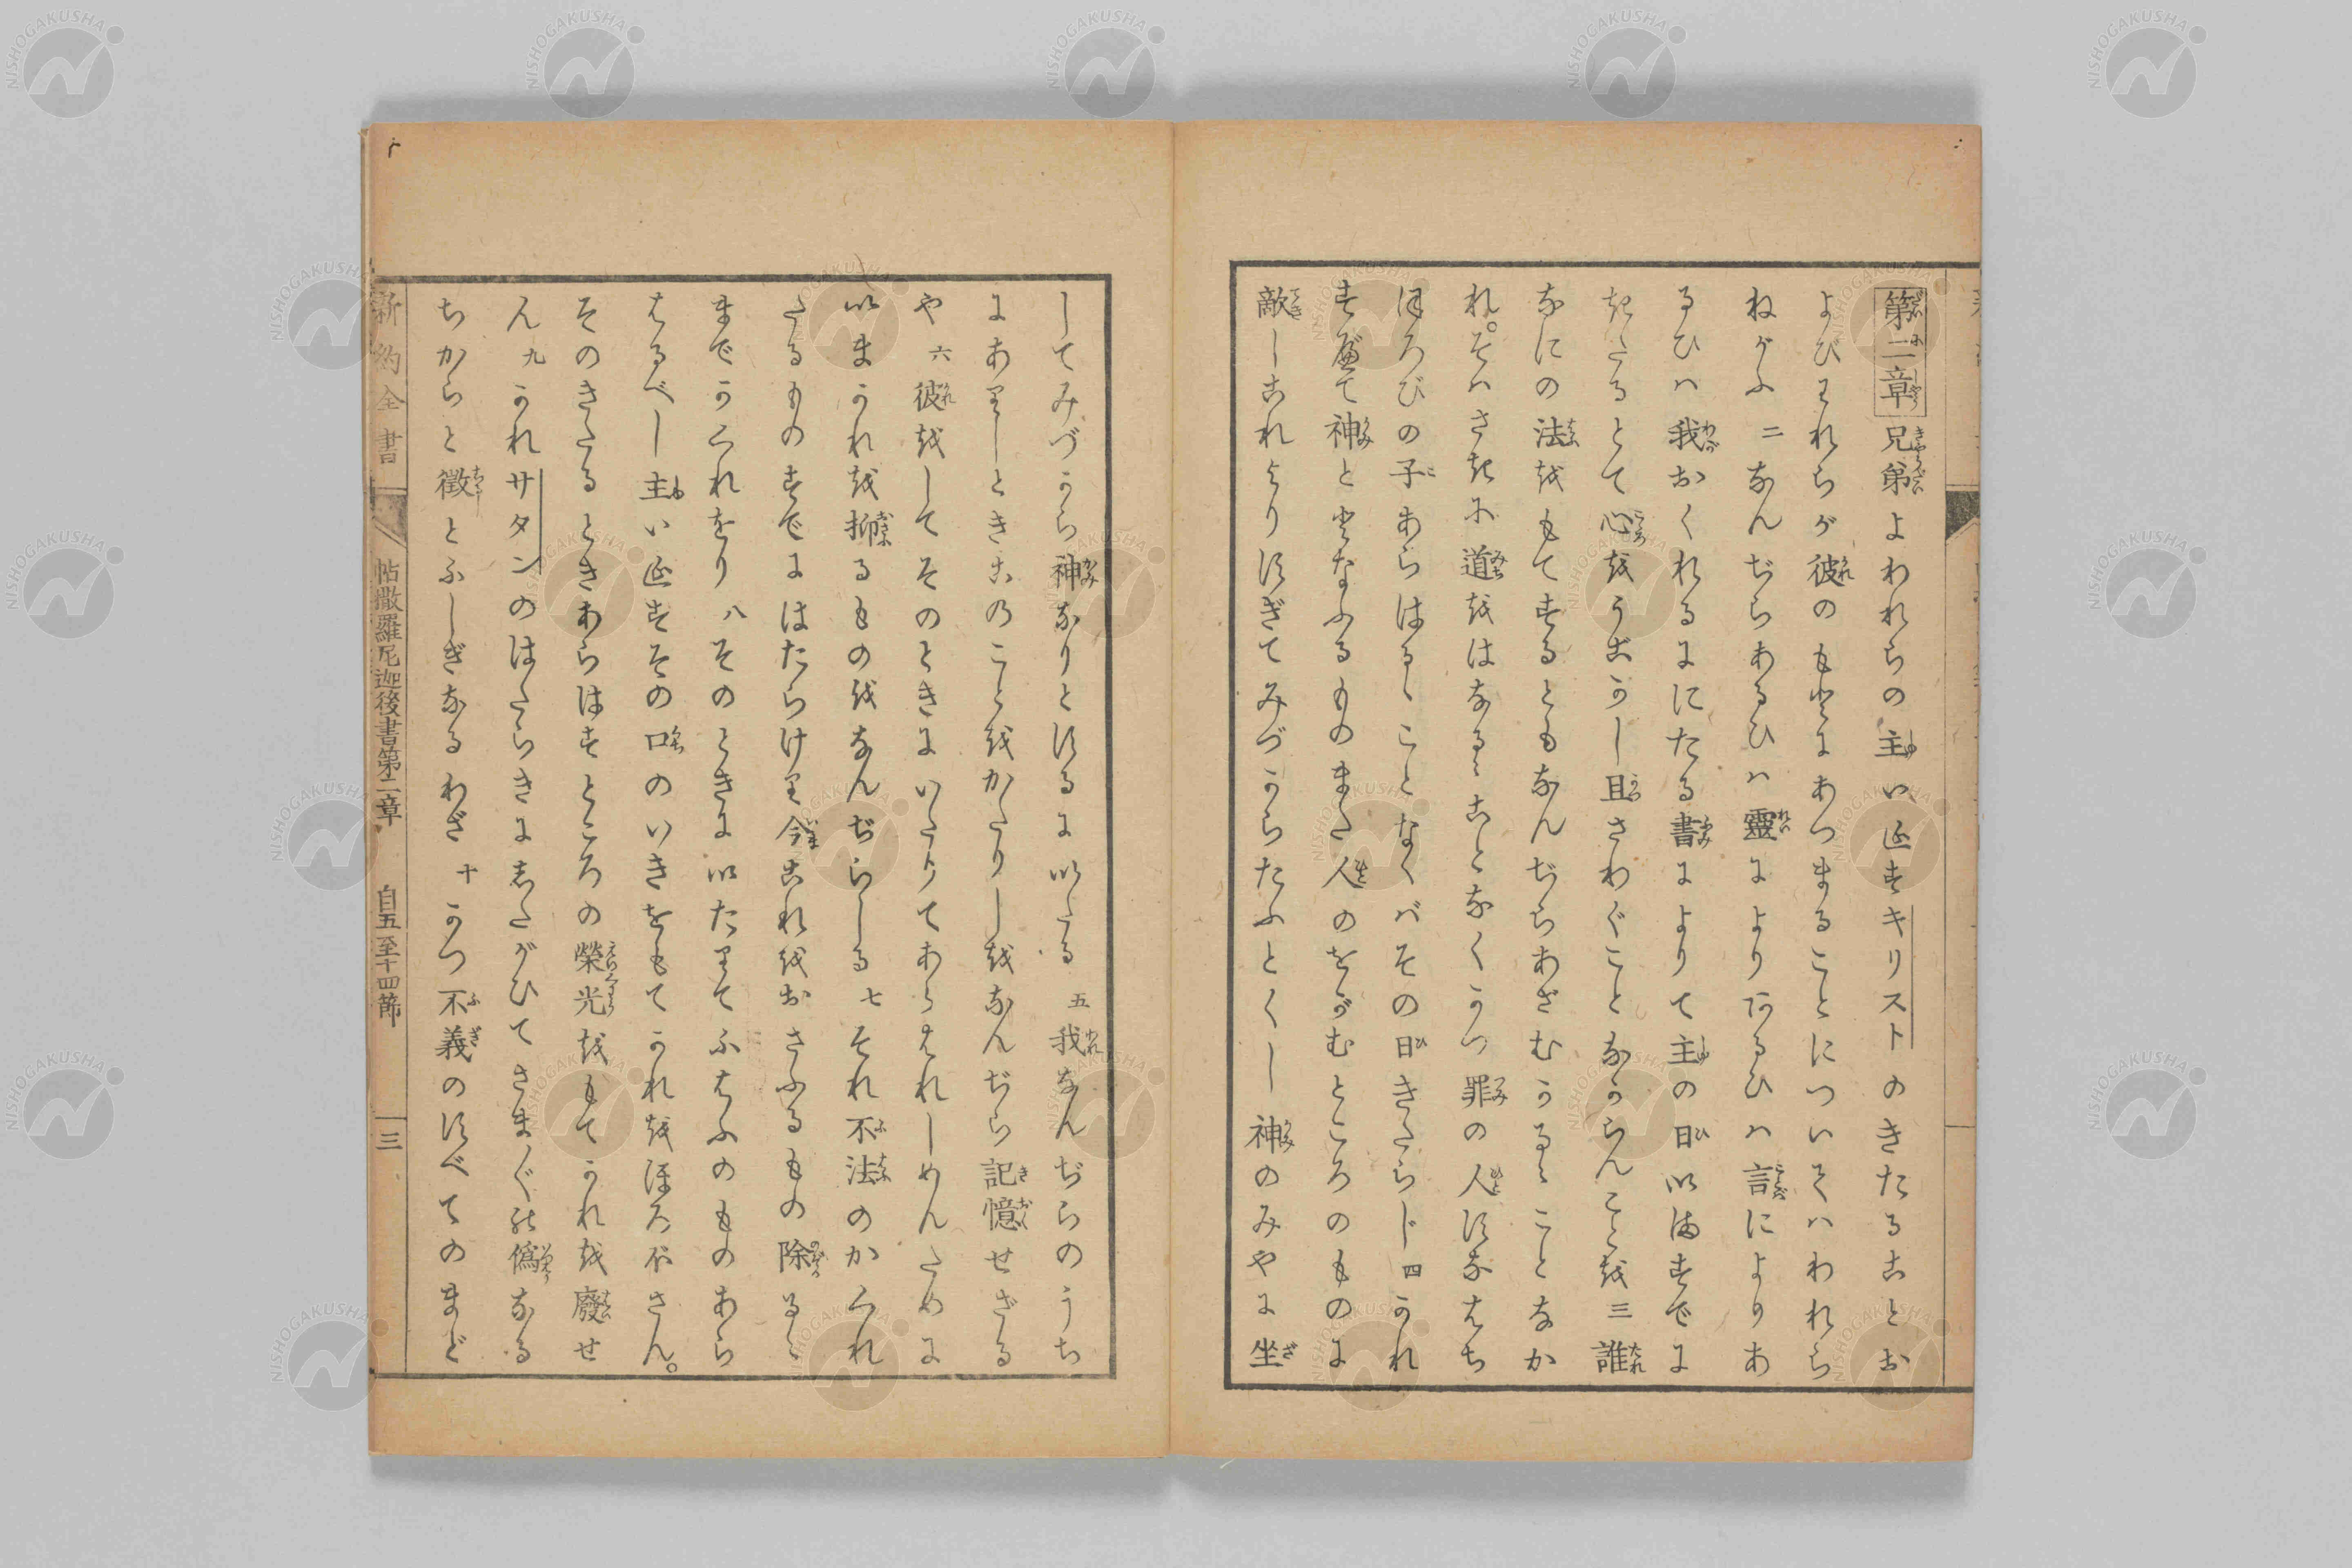 第二章兄弟よわれらの主いゑすキリストのきたることお
よびわれらが彼のもとにあつまることについてハわれら
ねがふ二なんぢらあるひハ靈によりあるひハ言によりあ
るひハ我おくれるににたる書によりて主の日いますでに
きたるとて心をうごかし且さわぐことなからんことを三誰
なにの法をもてするともなんぢらあざむかるゝことなか
れ。そハさきに道をはなるゝことなくかつ罪の人すなはち
ほろびの子あらはるゝことなくバその日きたらじ四かれ
すべて神ととなふるものまた人のをがむところのものに
敵しこれよりすぎてみづからたふとくし神のみやに坐
してみづから神なりとするにいたる五我なんぢらのうち
にありしときこのことをかたりしをなんぢら記憶せざる
や六彼をしてそのときにいたりてあらはれしめんために
いまかれを抑るものをなんぢらしる七それ不法のかくれ
たるものすでにはたらけり今これをおさふるもの除るゝ
までかくれをり八そのときにいたりてふはふのものあら
はるべし主いゑすその口のいきをもてかれをほろぼさん。
そのきたるときあらはすところの榮光をもてかれを廢せ
ん九かれサタンのはたらきにしたがひてさま〴〵の僞なる
ちからと徴とふしぎなるわざ十かつ不義のすべてのまど
新約全書
帖撒羅尼迦後書第二章
自五至十四節
三